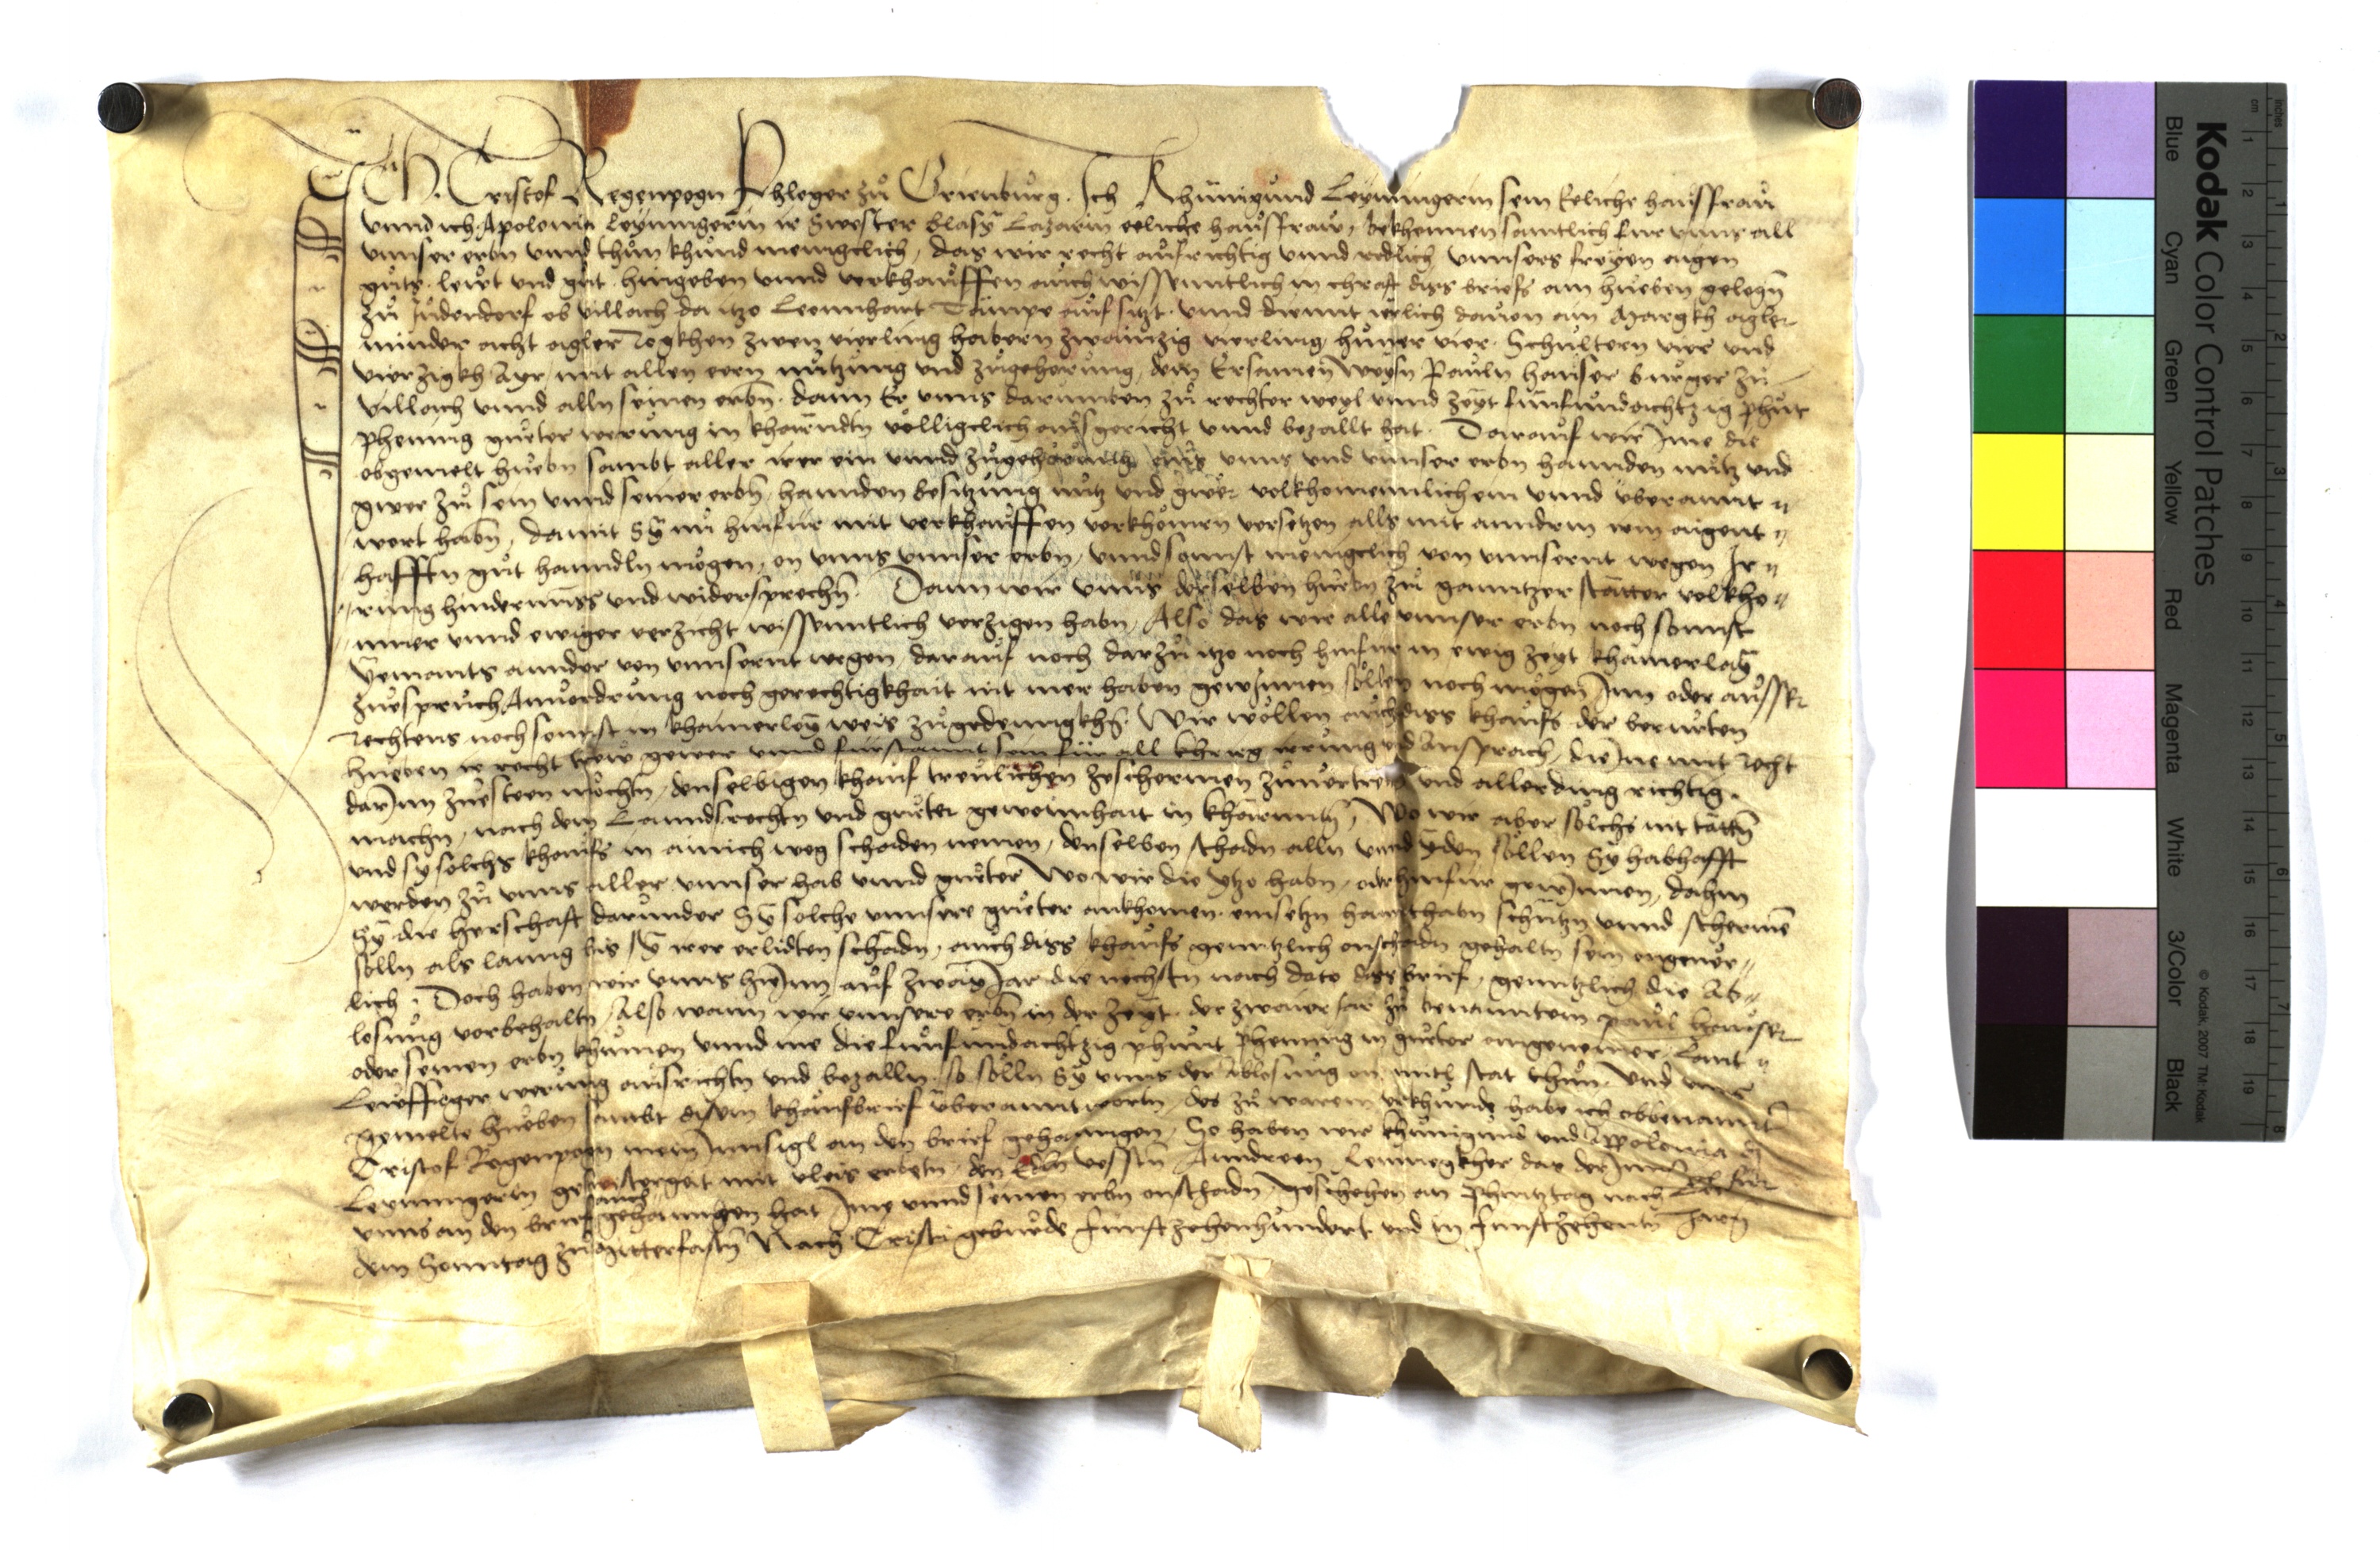 Ich Cristof Regenpogn Phleger zů Ortenburg. Ich Khünigund Leyningerin sein Eeliche hausfraw
vnnd ich Apolonia Leyningerin ir Swester Blasy Lazarin eeliche hausfraw, bekhennen samtlich fur vnns all
vnnser erbn vnnd thůn khund menigclich, das wir recht aufrichtig vnnd redlich vnnsers freyen aigen
gůts. lewt vnd gůt. hingeben vnnd verkhauffen auch wissenntlich in chraft diss briefs ain hueben gelegn
zů Juderdorf ob Villach da itzo Leonnhart auf sitzt. vnnd diennt ierlich dauon ain Margkh aigler
minder acht aigler Rogkhen zwen vierling habern zwainzig vierling hůner vier. Schultern vier vnd
vierzigkh Ayr, mit allen eren nutzung vnd zůgehorung, dem Ersamen Weysn Pauln Hauser burger zů
Villach vnnd alln seinen erbn. dann Er vnns darumben zů rechter weyl vnnd zeyt funfundachtzig phůnt
phening gueter werung in kharndtn völligclich ausgericht vnnd bezallt hat. Darauf wir Ime die
obgemelt hůebn sambt aller irer ein vnnd zůgehörung aus vnns vnd vnnser erbn hannden nutz vnd
gwer zů sein vnnd seiner erbn, hannden besitzung nutz vnd gwer volkhomennlich ein vnnd uberannt
wort habn, damit Sy nů hinfür mit verkhauffen verkhomen versetzen alls mit anndern irm aigent
hafften gůt hanndln mögen, on vnns vnnser erbn, vnnd sonnst menigclich von vnnsernt wegen Ir
rung hindernuss vnd widersprechn. Dann wir vnns derselben hůebn zů ganntzer stätter volkho
mner vnnd ewiger verzicht wissenntlich verzigen habn, Also das wir alle vnnser erbn noch sonnst
yemants annder von vnnsernt wegen, darauf noch darzů itzo noch hinfur in ewig zeyt khainerlay
zůespruch, Anuordrung noch gerechtigkhait nit mer haben gewinnen sollen noch mögen Inn oder ausser
Rechtens noch sonnst in khainerlay weis zůgedenngkhn. Wir wöllen auch diss khaufs der berurten
hueben ir recht gewer vnnd furstannt sein für all khrieg irrung vnd ansprach, die Ine mit Recht
darInn zůesteen möchtn, denselbigen khauf treulichen zeschermen zůuertreten vnd allerding richtig
machn, nach dem Lanndsrechtn vnd gueter gewonnhait in khärnntn, Wo wir aber solchs nit tättn
vnd sy solchs khaufs in ainich weg schaden nemen, denselben schadn alln vnnd yeden söllen Sy habhafft
werden zů vnns aller vnnser hab vnnd gůeter Wo wir die ytzo habn, oder hinfur gewinnen, dahin
Sy die herschaft darunder Sy solche vnnsere gůeter ankhomen. einsetzn hannthabn schutzn vnnd schermen
solln als lanng bis Sy irer erlidten schadn, auch diss khaufs genntzlich onschadn gehaltn sein vngeuer
lich. Doch haben wir vnns hierInn auf zway Jar die nechstn nach dato diss brief, genntzlich die Ab
losung vorbehaltn, Also wann wir vnnsere erbn in der zeyt der zwaier Jar zů benanntem Paul Hauser
oder seinen erbn khumen vnnd ine die funfundachtzig phunt phening in gůeter angenemer, Lannt
Leuffiger werung ausrichtn vnd bezalln. So solln Sy vnns der Ablosung on mitl stat thůn. vnd vnns
gemelte hueben sambt disem khaufbrief uberanntworttn, des zů warem vrkhunde habe ich obbenannt
Cristof Regenpogn mein Innsigl an den brief gehanngen, So haben wir khunigund vnd Appolonia die
Leyningerin geswistergat mit vleis erbetn, den Edln vesstn Anndreen das der sein Insigl fur
vnns an den brief auch gehanngen hat Ime vnnd seinen erbn onschadn, Geschehen an Phintztag nach
dem Sonntag zů Mitterfastn Nach Cristi gebůrde funfzehenhundert vnd in funfzehentn Jarn